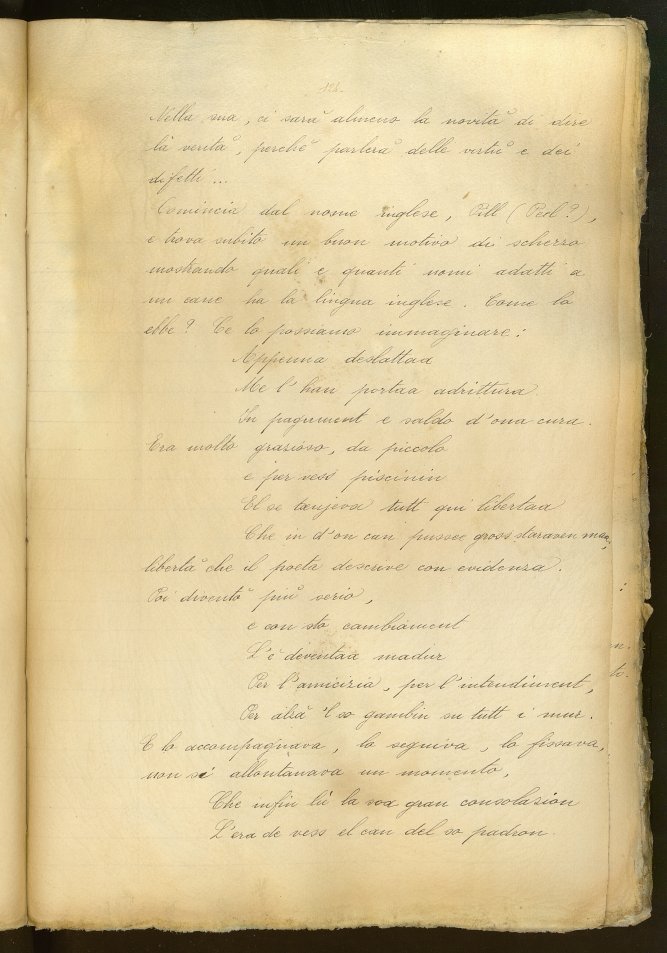 Nella sua, ci sarà almeno la novità di dire
la verità, perchè parlerà delle virtù e dei
difetti...
Comincia dal nome inglese, Pill (Peel?),
e trova subito un buon motivo di scherzo
mostrando quali e quanti nomi adatti a
un cane ha la lingua inglese. Come lo
ebbe? Ce lo possiamo immaginare:
Appenna deslattaa
Me l'han portaa adrittura
In pagament e saldo d'ona cura.
Era molto grazioso, da piccolo
e per vess piscinin
El se toeujeva tutt qui libertaa
Che in d'on can pussee gross staraven maa,
libertà che il poeta descrive con evidenza.
Poi diventò più serio,
e con sto cambiament
L'è deventaa madur
Per l'amicizia, per l'intendiment,
Per alzà 'l so gambin su tutt i mur.
E lo accompagnava, lo seguiva, lo fissava,
non si allontanava un momento,
Che infin lù la soa gran consolazion
L'era de vess el can del so padron.